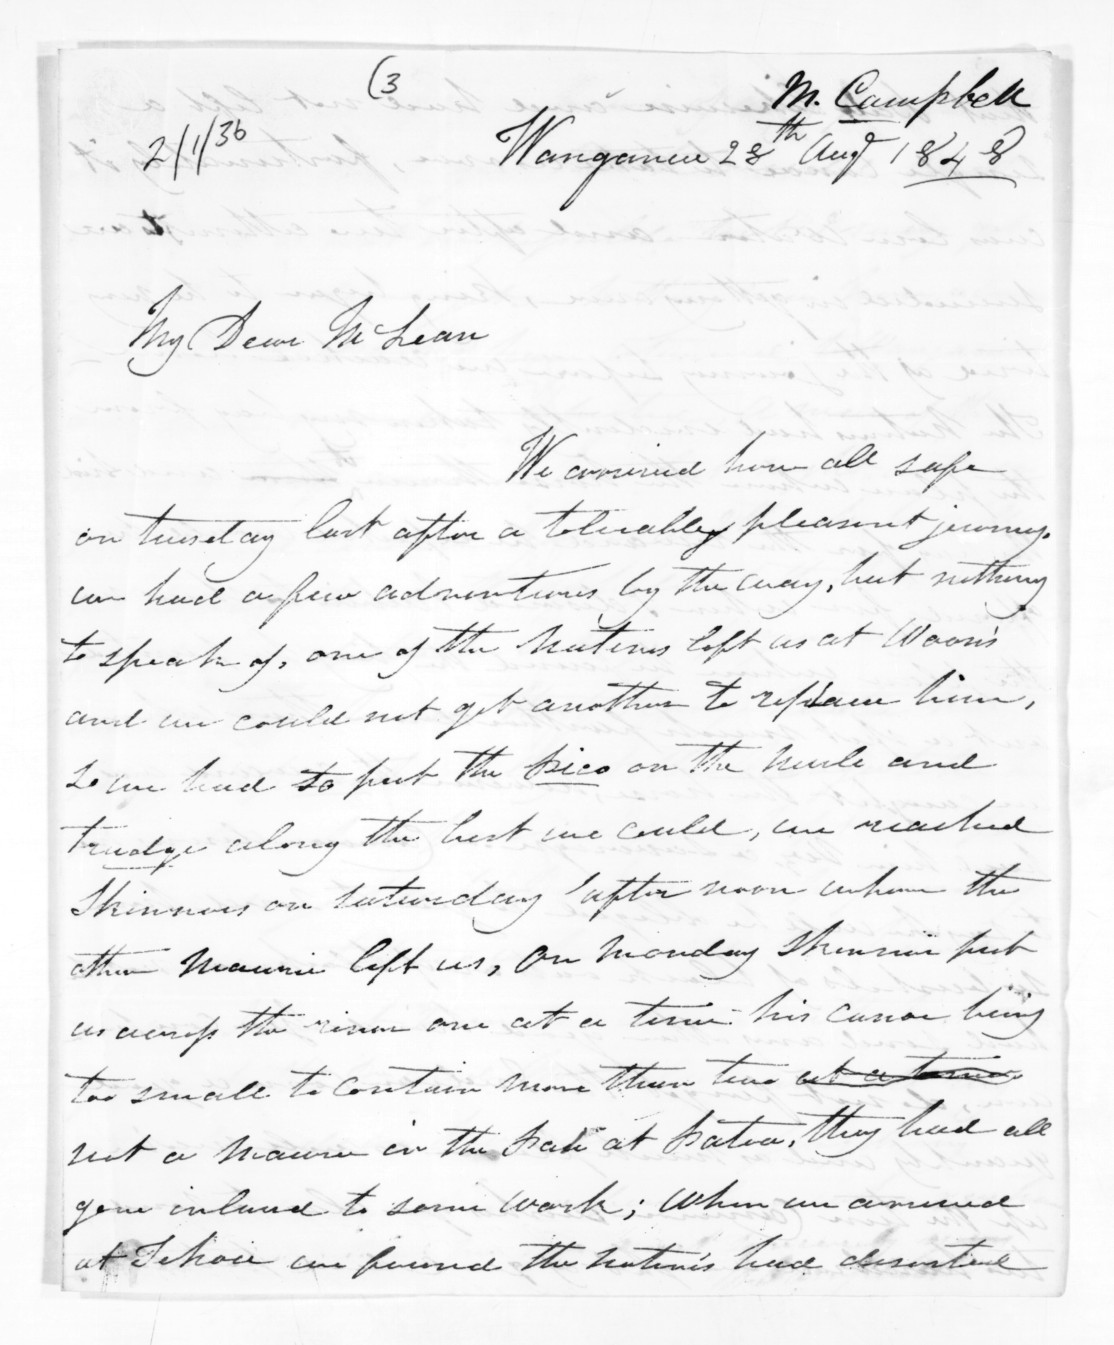 (3
M. Campbell
2/1/36
Wanganui 28th Augt 1848
My Dear McLean
We arrived here all safe
on tuesday last after a tolerably pleasant journey.
we had a few adventures by the way, but nothing
to speak of, one of the natives left us at Woon's
and we could not get another to replace him,
so we had to put the pico on the mule and
trudge along the best we could, we reached
Skinners on Saturday afternoon where the
other Maurie left us, On monday Skinner put
us across the river one at a time his canoe being
too small to contain more than two at a time.
not a Maurie in the Pah at Patea, they had all
gone inland to some work; When we arrived
at we found the native's had deserted